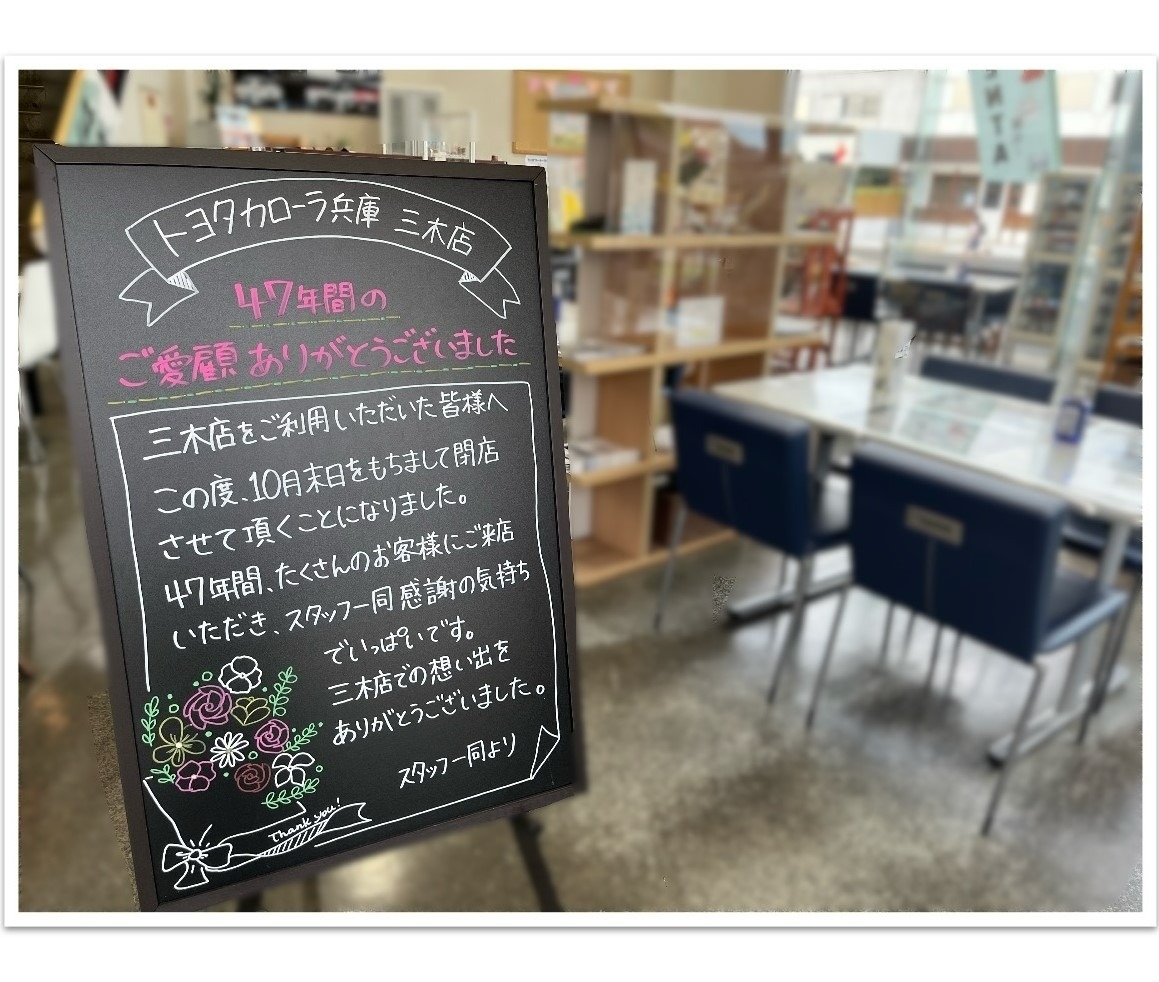 トヨタカローラ兵庫 三木店
47年間の
ご愛顧ありがとうございました
三木店をご利用いただいた皆様へ
この度、10月末日をもちまして閉店
させて頂くことになりました。
47年間、たくさんのお客様にご来店
いただき、スタッフ一同感謝の気持ち
でいっぱいです。
三木店での想い出を
ありがとうございました。
スタッフ一同より
Thank you!